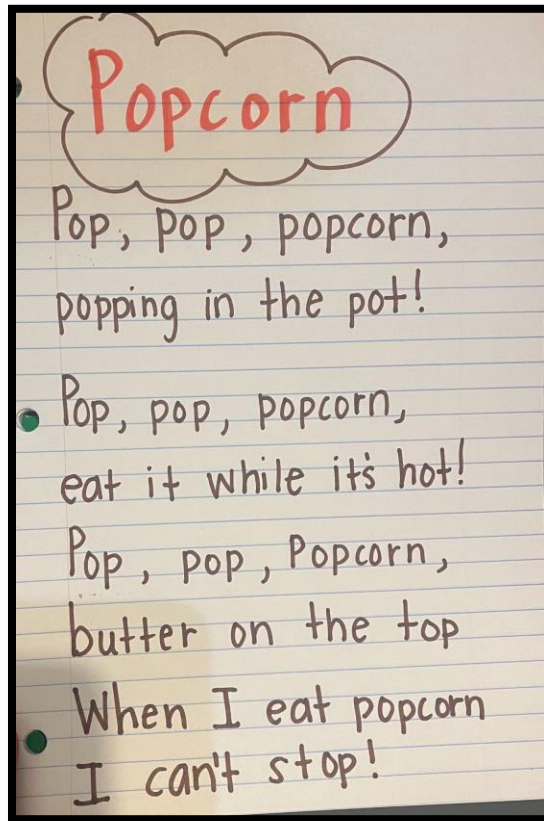 Popcorn
Pop, pop, popcorn,
popping in the pot!
Pop, pop, popcorn,
eat it while it's hot!
Pop, pop, Popcorn,
butter on the top
When I eat popcorn
I can't stop!